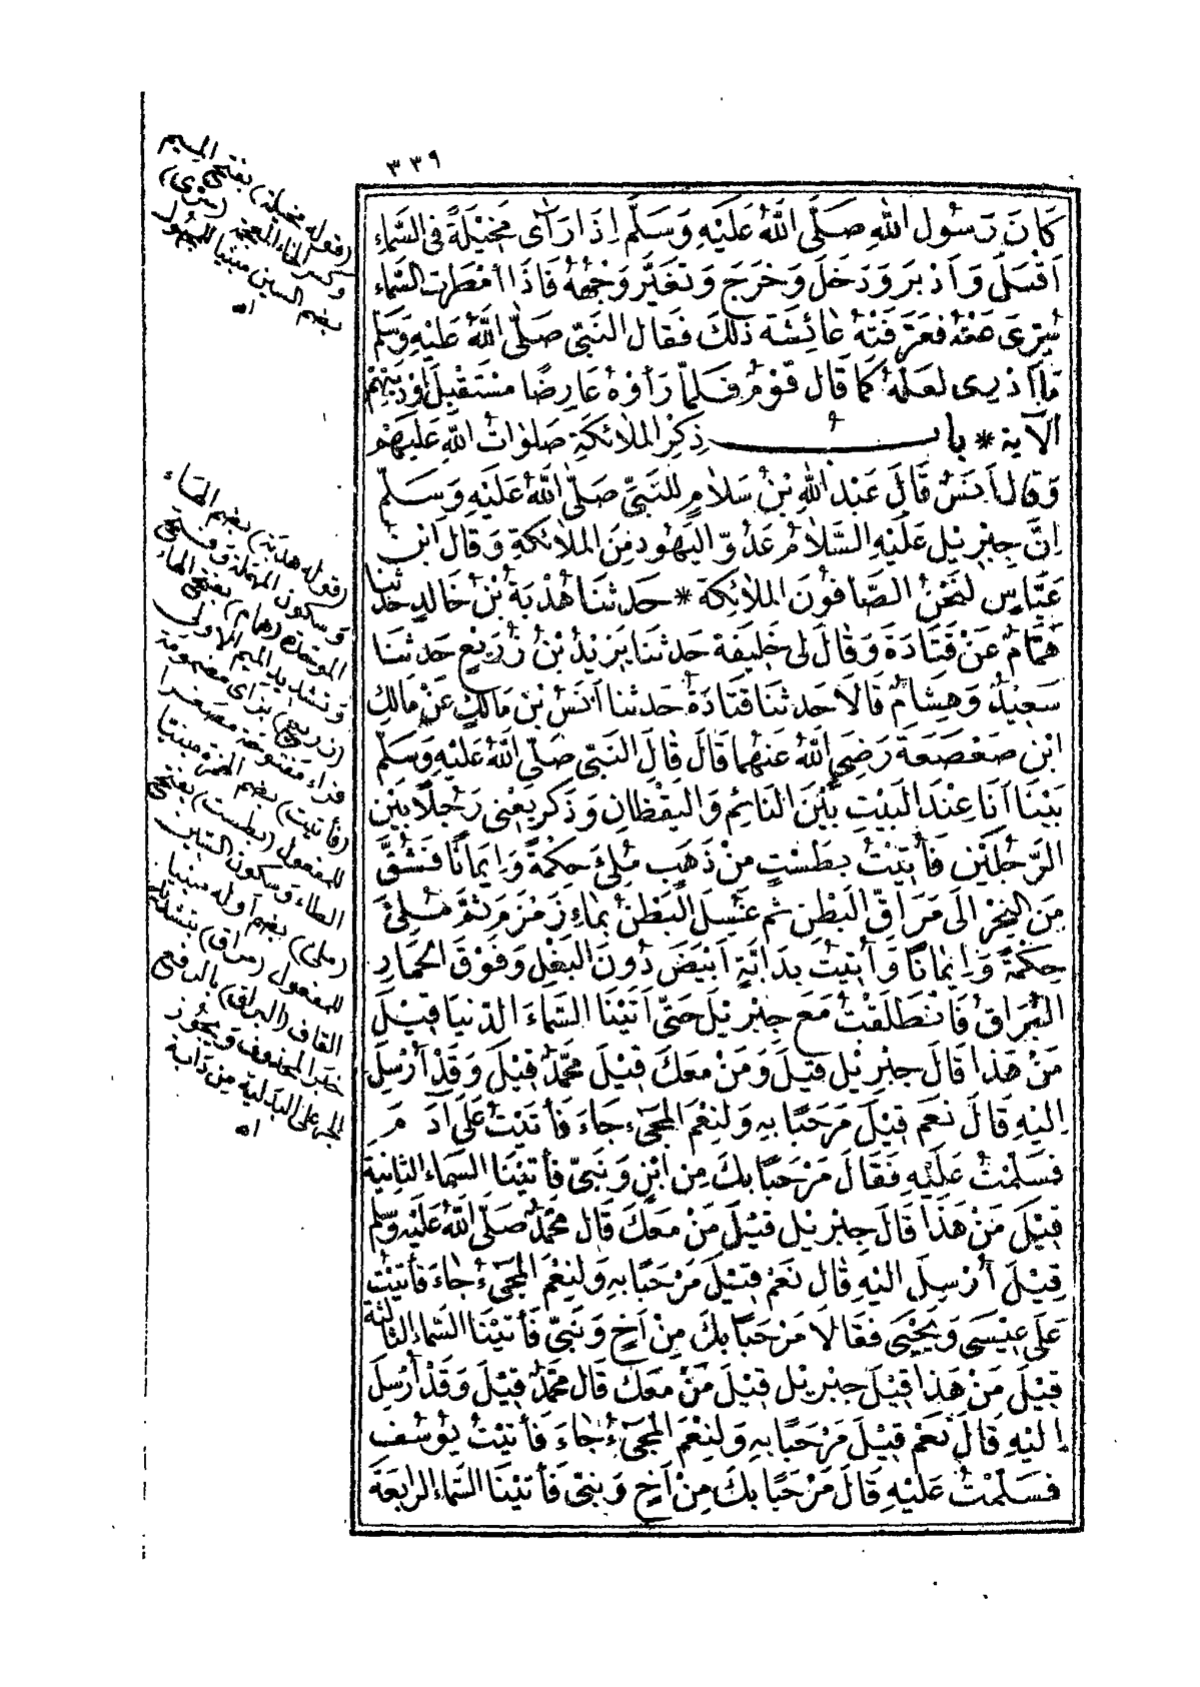 ٣٣٩
كَانَ رَسُولُ اللهِ صَلَّى اللهُ عَلَيْهِ وَسَلَّمَ إِذَا رَأَى مَخِيلَةً فِي السَّمَاءِ
أَقْبَلَ وَأَدْبَرَ وَدَخَلَ وَخَرَجَ وَتَغَيَّرَ وَجْهُهُ فَإِذَا أَمْطَرَتِ السَّمَاءُ
سُرِّيَ عَنْهُ فَعَرَّفَتْهُ عَائِشَةُ ذَلِكَ فَقَالَ النَّبِيُّ صَلَّى اللهُ عَلَيْهِ وَسَلَّمَ
مَا أَدْرِي لَعَلَّهُ كَمَا قَالَ قَوْمٌ فَلَمَّا رَأَوْهُ عَارِضًا مُسْتَقْبِلَ أَوْدِيَتِهِمْ
الْآيَةَ * بَابُ ذِكْرِ الْمَلَائِكَةِ صَلَوَاتُ اللهِ عَلَيْهِمْ
وَقَالَ أَنَسٌ قَالَ عَبْدُ اللهِ بْنُ سَلَامٍ لِلنَّبِيِّ صَلَّى اللهُ عَلَيْهِ وَسَلَّمَ
إِنَّ جِبْرِيلَ عَلَيْهِ السَّلَامُ عَدُوُّ الْيَهُودِ مِنَ الْمَلَائِكَةِ وَقَالَ ابْنُ
عَبَّاسٍ لَنَحْنُ الصَّافُّونَ الْمَلَائِكَةُ * حَدَّثَنَا هُدْبَةُ بْنُ خَالِدٍ حَدَّثَنَا
هَمَّامٌ عَنْ قَتَادَةَ وَقَالَ لِي خَلِيفَةُ حَدَّثَنَا يَزِيدُ بْنُ زُرَيْعٍ حَدَّثَنَا
سَعِيدٌ وَهِشَامٌ قَالَا حَدَّثَنَا قَتَادَةُ حَدَّثَنَا أَنَسُ بْنُ مَالِكٍ عَنْ مَالِكِ
ابْنِ صَعْصَعَةَ رَضِيَ اللهُ عَنْهُمَا قَالَ قَالَ النَّبِيُّ صَلَّى اللهُ عَلَيْهِ وَسَلَّمَ
بَيْنَا أَنَا عِنْدَ الْبَيْتِ بَيْنَ النَّائِمِ وَالْيَقْظَانِ وَذَكَرَ يَعْنِي رَجُلًا بَيْنَ
الرَّجُلَيْنِ فَأُتِيتُ بِطَسْتٍ مِنْ ذَهَبٍ مُلِئَ حِكْمَةً وَإِيمَانًا فَشُقَّ
مِنَ النَّحْرِ إِلَى مَرَاقِّ الْبَطْنِ ثُمَّ غُسِلَ الْبَطْنُ بِمَاءِ زَمْزَمَ ثُمَّ مُلِئَ
حِكْمَةً وَإِيمَانًا وَأُتِيتُ بِدَابَّةٍ أَبْيَضَ دُونَ الْبَغْلِ وَفَوْقَ الْحِمَارِ
الْبُرَاقُ فَانْطَلَقْتُ مَعَ جِبْرِيلَ حَتَّى أَتَيْنَا السَّمَاءَ الدُّنْيَا قِيلَ
مَنْ هَذَا قَالَ جِبْرِيلُ قِيلَ وَمَنْ مَعَكَ قِيلَ مُحَمَّدٌ قِيلَ وَقَدْ أُرْسِلَ
إِلَيْهِ قَالَ نَعَمْ قِيلَ مَرْحَبًا بِهِ وَلَنِعْمَ الْمَجِيءُ جَاءَ فَأَتَيْتُ عَلَى آدَمَ
فَسَلَّمْتُ عَلَيْهِ فَقَالَ مَرْحَبًا بِكَ مِنِ ابْنٍ وَنَبِيٍّ فَأَتَيْنَا السَّمَاءَ الثَّانِيَةَ
قِيلَ مَنْ هَذَا قَالَ جِبْرِيلُ قِيلَ مَنْ مَعَكَ قَالَ مُحَمَّدٌ صَلَّى اللهُ عَلَيْهِ وَسَلَّمَ
قِيلَ أُرْسِلَ إِلَيْهِ قَالَ نَعَمْ قِيلَ مَرْحَبًا بِهِ وَلَنِعْمَ الْمَجِيءُ جَاءَ فَأَتَيْتُ
عَلَى عِيسَى وَيَحْيَى فَقَالَا مَرْحَبًا بِكَ مِنْ أَخٍ وَنَبِيٍّ فَأَتَيْنَا السَّمَاءَ الثَّالِثَةَ
قِيلَ مَنْ هَذَا قِيلَ جِبْرِيلُ قِيلَ مَنْ مَعَكَ قَالَ مُحَمَّدٌ قِيلَ وَقَدْ أُرْسِلَ
إِلَيْهِ قَالَ نَعَمْ قِيلَ مَرْحَبًا بِهِ وَلَنِعْمَ الْمَجِيءُ جَاءَ فَأَتَيْتُ يُوسُفَ
فَسَلَّمْتُ عَلَيْهِ قَالَ مَرْحَبًا بِكَ مِنْ أَخٍ وَنَبِيٍّ فَأَتَيْنَا السَّمَاءَ الرَّابِعَةَ
(قوله مخيلة) بفتح الميم
وكسر الخاء المعجمة (سرى)
بضم السين مبنيا للمجهول
اه
(قوله هدبة) بضم الهاء
وسكون المهملة وفتح
الموحدة (همام) بفتح الهاء
وتشديد الميم الاولى
(زريع) بزاى مضمومة
فراء مفتوحة مصغرا
(فأتيت) بضم الهمزة مبنيا
للمفعول (بطست) بفتح
الطاء وسكون السين
(ملئ) بضم أوله مبنيا
للمفعول (مراق) بتشديد
القاف (البراق) بالرفع
خبر المحذوف ويجوز
الجر على البدلية من دابة
اه